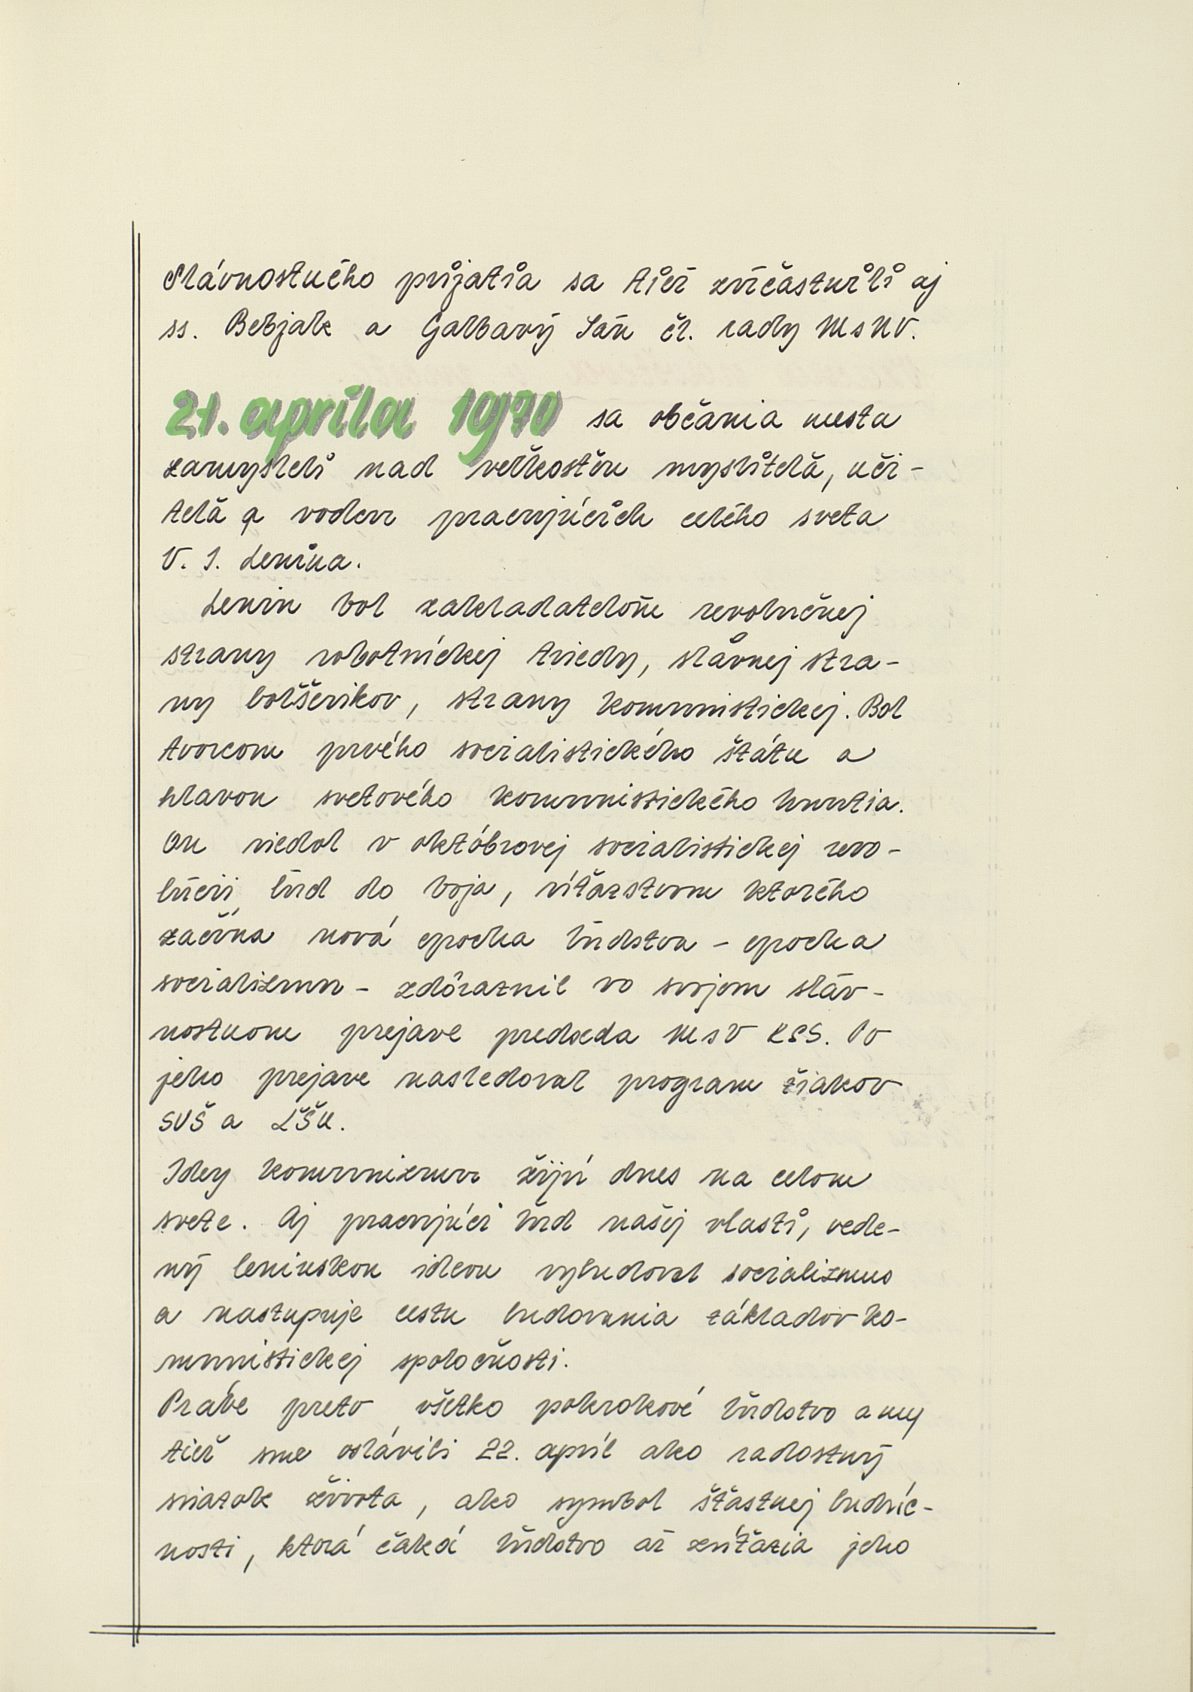 Slávnostného prijatia sa tiež zúčastnili aj
ss. Bebjak a Galbavý Ján čl. rady MsNV.
21. apríla 1970 sa občania mesta
zamysleli nad veľkosťou mysliteľa, uči-
teľa a vodcu pracujúcich celého sveta
V. I. Lenina.
Lenin bol zakladateľom revolučnej
strany robotníckej triedy, slávnej stra-
ny boľševikov, strany komunistickej. Bol
tvorcom prvého socialistického štátu a
hlavou svetového komunistického hnutia.
On viedol v októbrovej socialistickej revo-
lúcii ľud do boja, víťazstvom ktorého
začína nová epocha ľudstva - epocha
socializmu - zdôraznil vo svojom sláv-
nostnom prejave predseda MsV KSS. Po
jeho prejave nasledoval program žiakov
SVŠ a ĽŠU.
Idey komunizmu žijú dnes na celom
svete. Aj pracujúci ľud našej vlasti, vede-
ný leninskou ideou vybudoval socializmus
a nastupuje cestu budovania základov ko-
munistickej spoločnosti.
Práve preto všetko pokrokové ľudstvo a my
tiež sme oslávili 22. apríl ako radostný
sviatok života, ako symbol šťastnej budúc-
nosti, ktorá čaká ľudstvo až zvíťazia jeho